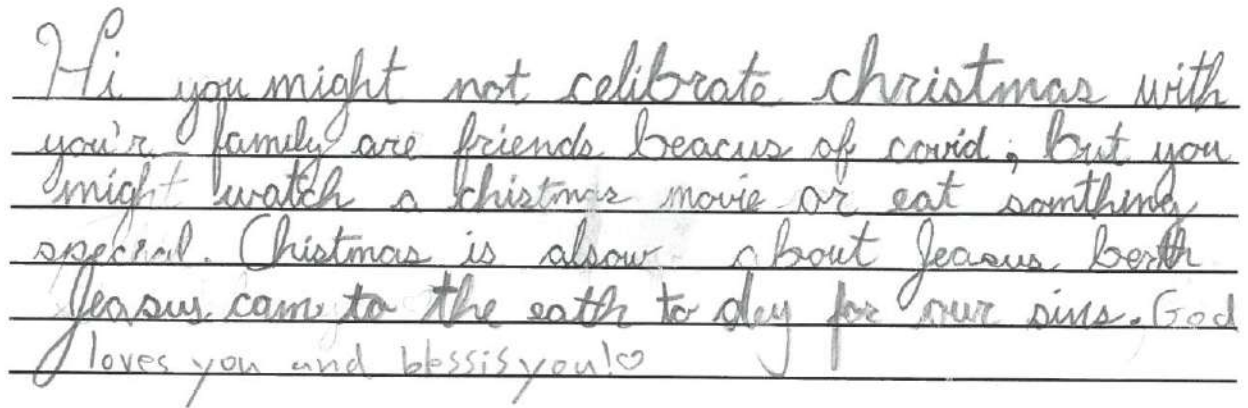 Hi you might not celibrate christmas with
you'r family are friends beacus of covid, but you
might watch a chistmas movie or eat somthing
special. Chistmas is alsow about Jeasus berth
Jeasus came to the eath to dey for our sins. God
loves you and blessis you!♡